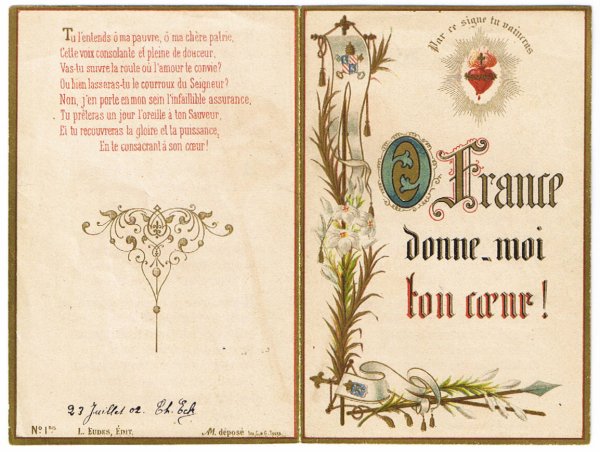 Tu l'entends ô ma pauvre, ô ma chère patrie,
Cette voix consolante et pleine de douceur,
Vas-tu suivre la route où l'amour te convie?
Ou bien lasseras-tu le courroux du Seigneur?
Non, j'en porte en mon sein l'infaillible assurance,
Tu prêteras un jour l'oreille à ton Sauveur,
Et tu recouvreras la gloire et ta puissance,
En te consacrant à son cœur!
23 Juillet 02. Th. Eck
No 1 bis L. EUDES, ÉDIT. M. déposé
Par ce signe tu vaincras
O France
donne-moi
ton cœur!